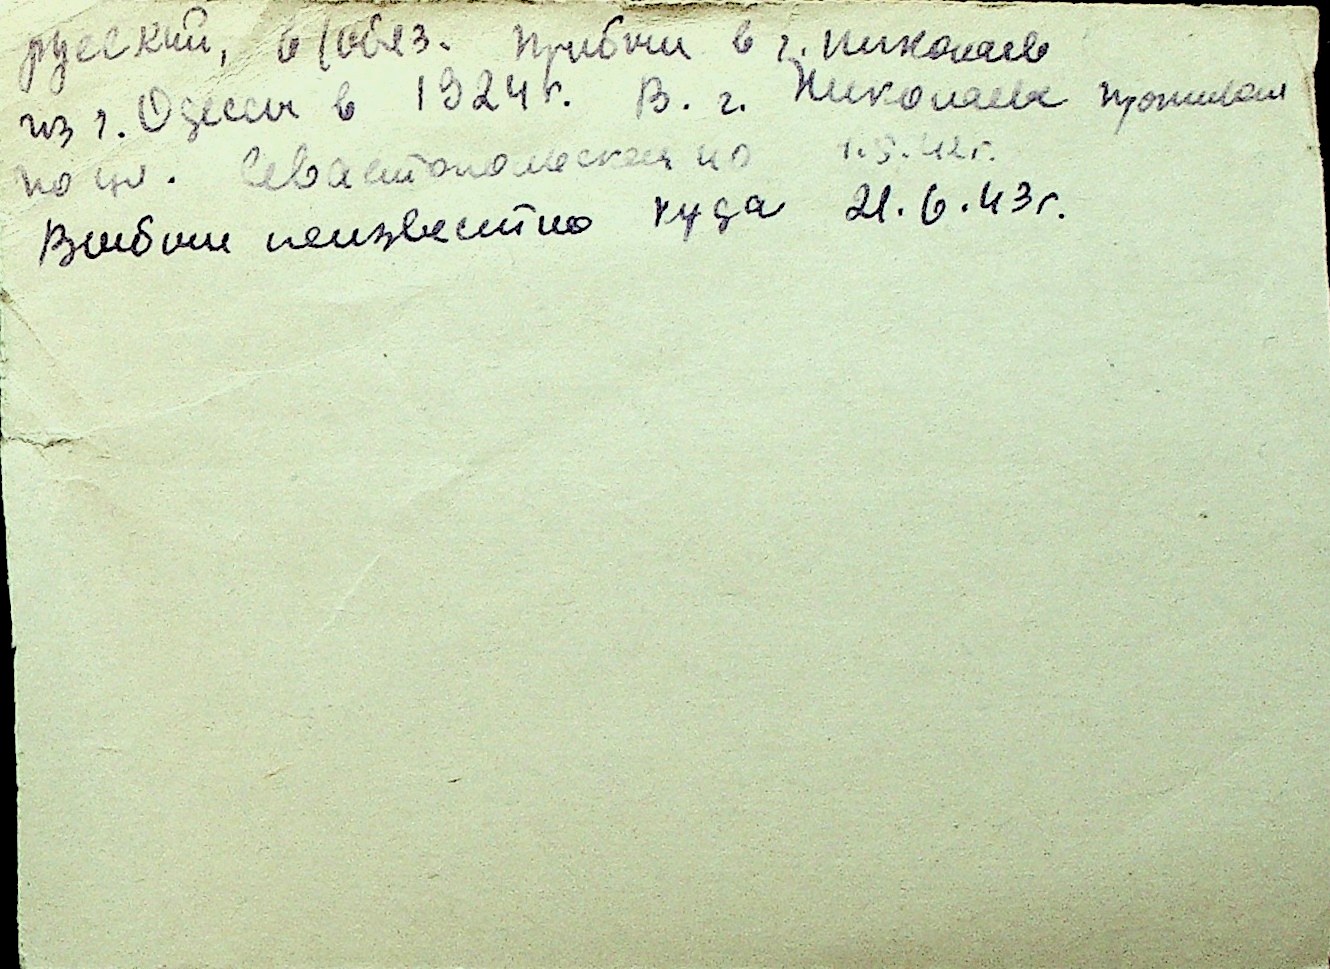 русский, в/обяз. Прибыл в г. Николаев
из г. Одессы в 1924 г. В. г. Николаеве проживал
по ул. Севастопольской до 1.5.42 г.
Выбыл неизвестно куда 21.6.43 г.